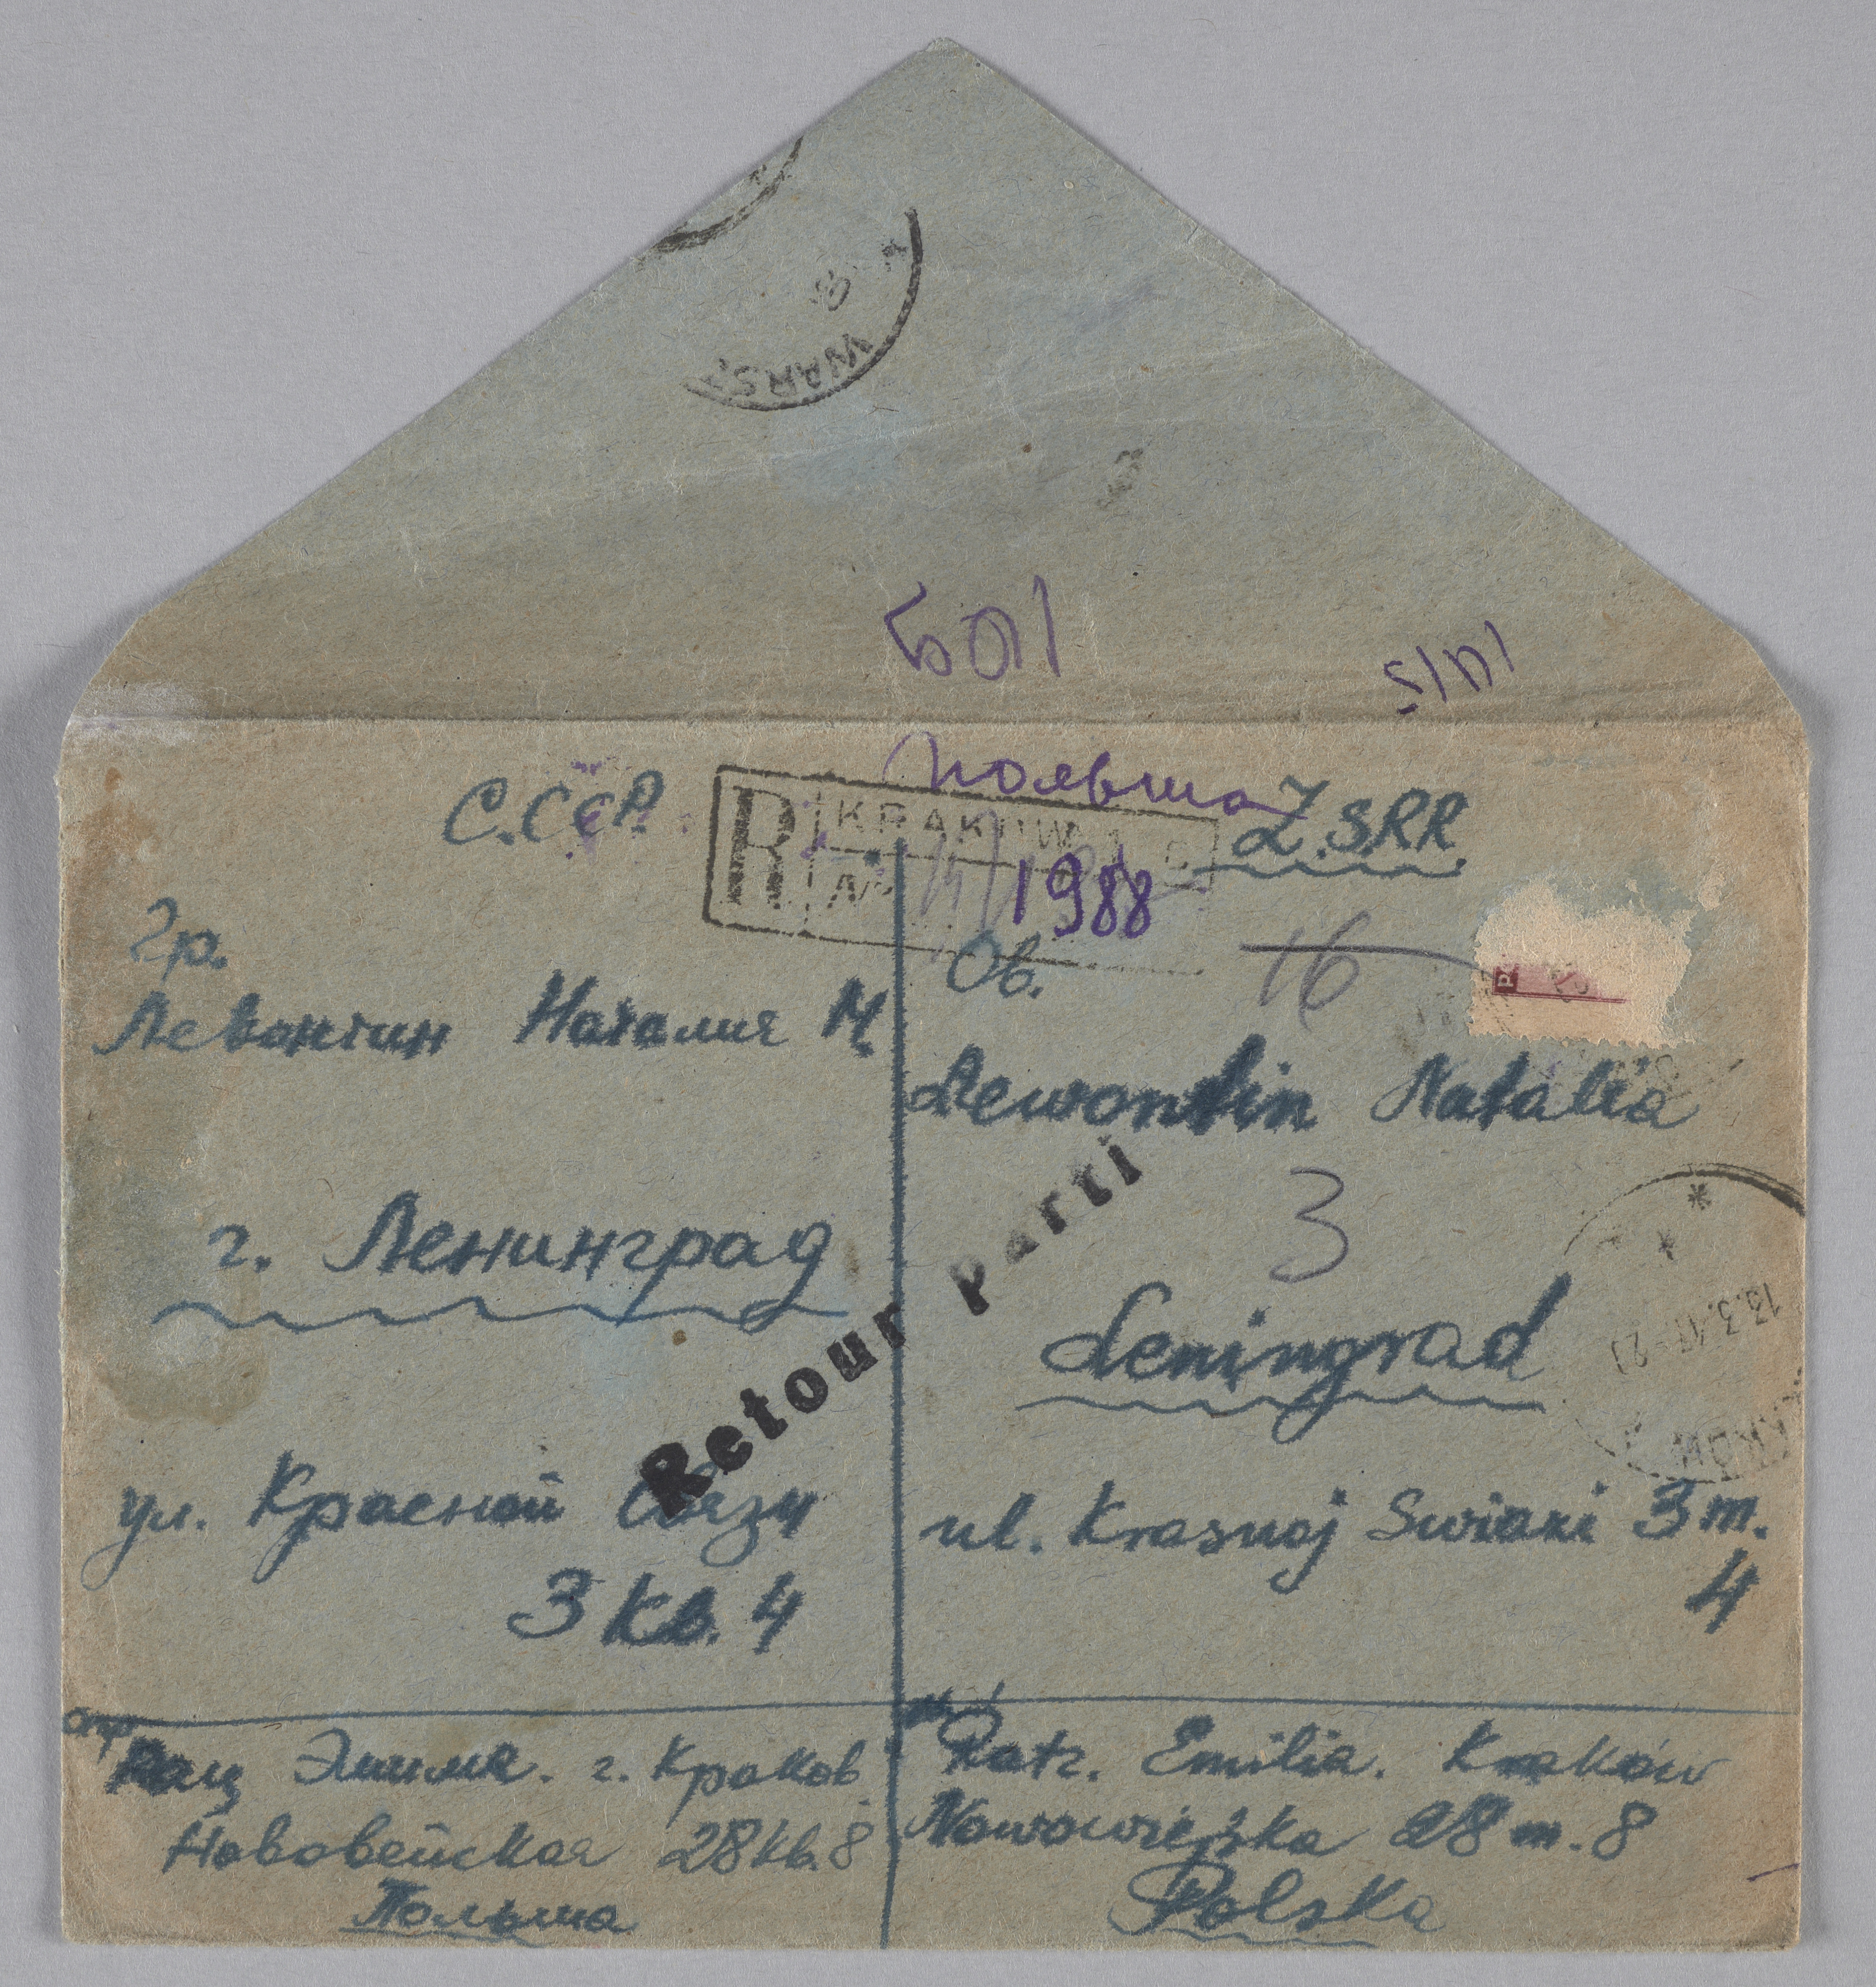 WARS
501
польша
С.ССР.
Z.S.R.R.
R
KRAKÓW 1
№
1988
16
Гр.
Левонтин Наталия М.
Ob.
Lewontin Natalia
3
г. Ленинград
Leningrad
Retour Parti
ул. Красной Связи
3 кв. 4
ul. Krasnoj Swiazi 3 m.
4
отр.
Рац Эмилия. г. Краков
Нововейская 28 кв. 8
Польша
Ratz. Emilia. Kraków
Nowowiejska 28 m. 8
Polska